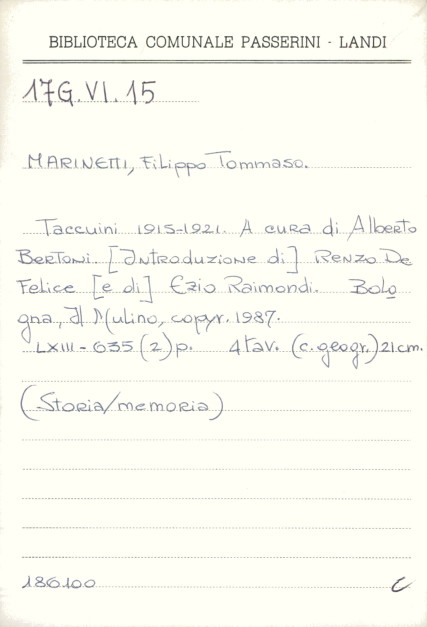 BIBLIOTECA COMUNALE PASSERINI - LANDI
17G.VI.15
MARINETTI, Filippo Tommaso.
Taccuini 1915-1921. A cura di Alberto
Bertoni. [Introduzione di] Renzo De
Felice [e di] Ezio Raimondi. Bolo
gna, Il Mulino, copyr. 1987.
LXIII - 635 (2) p. 4 tav. (c. geogr.) 21 cm.
(Storia/memoria)
186100 C